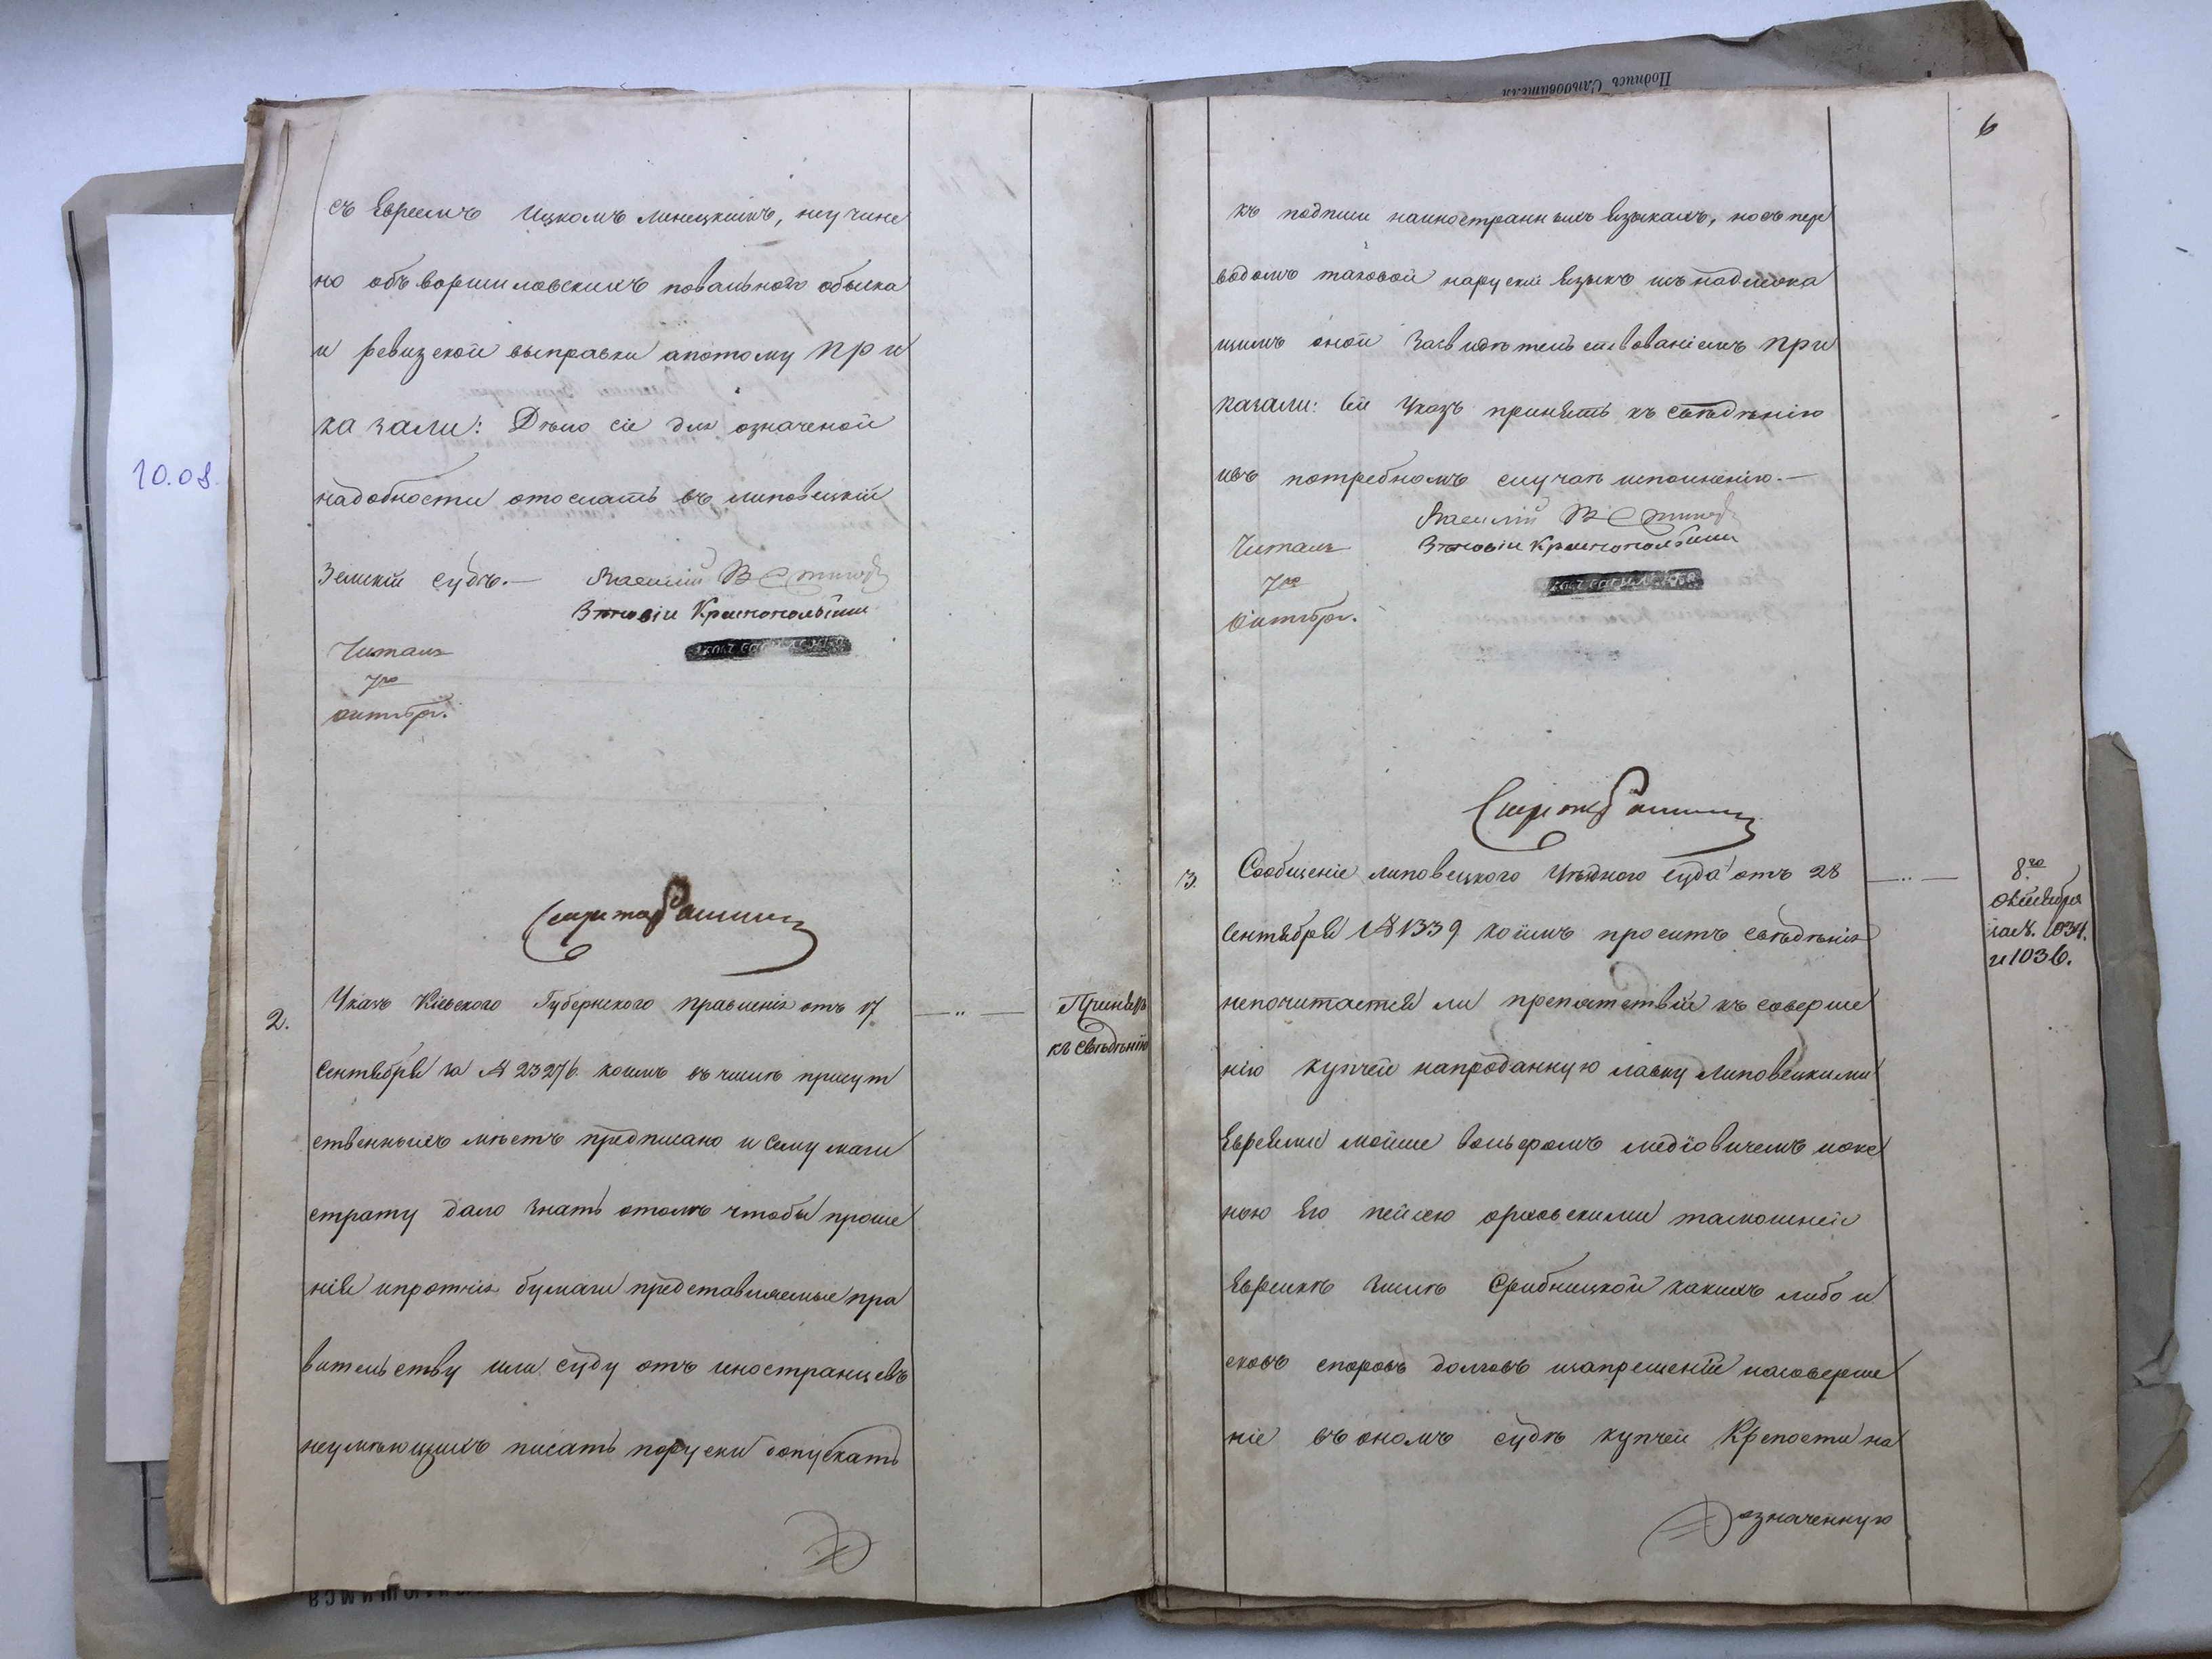 съ Евреемъ Ицкомъ Линецкимъ, неучине
но объ ворошиловскихъ повальнаго обыска
и ревизской выправки а потому при
казали: Дѣло сіе для означеной
надобности отослать въ липовецкій
Земскій судъ.— Василій
Зѣновіи Краснопольскии
Читалъ
7го
октября.
Секретарь
2. Указъ Кіевского Губернского Правленія отъ 17
Сентября за № 23276. коимъ въ числѣ присут
ственныхъ мѣстъ предписано и сему маги
страту дало знать отомъ чтобы проше
нія ипротчія бумаги представляемые пра
вительству или суду отъ иностранцевъ
неумѣющихъ писать поруски допускать
Принять
къ свѣдѣнію
6
къ подписи наиностранныхъ языкахъ, носъ пере
водомъ таковой наруский языкъ исъ надлежа
щимъ оной засвидѣтельствованіемъ при
казали: Сей Указъ принять къ свѣдѣнію
ивъ потребномъ случаѣ исполненію.—
Василій
Зѣновіи Краснопольскии
Читалъ
7го
октября.
Секретарь
3. Сообщеніе липовецкого Уѣздного суда отъ 28
Сентября № 1339 коимъ проситъ свѣдѣнія
непочитается ли препятствій къ соверше
нію купчей напроданную лавку Липовецкими
Евреями мошие вольфомъ медювичемъ ижe
ною Его пейсею орховскими тамошней
Еврейкѣ Сребницкой какихъ либо и
сковъ споровъ долговъ изапрещеній насоверше
ніе въ ономъ судѣ купчей Крепости на
означенную
8го
октября
за №. 1034.
и 1036.
10.08.
Подпись Слѣдователя